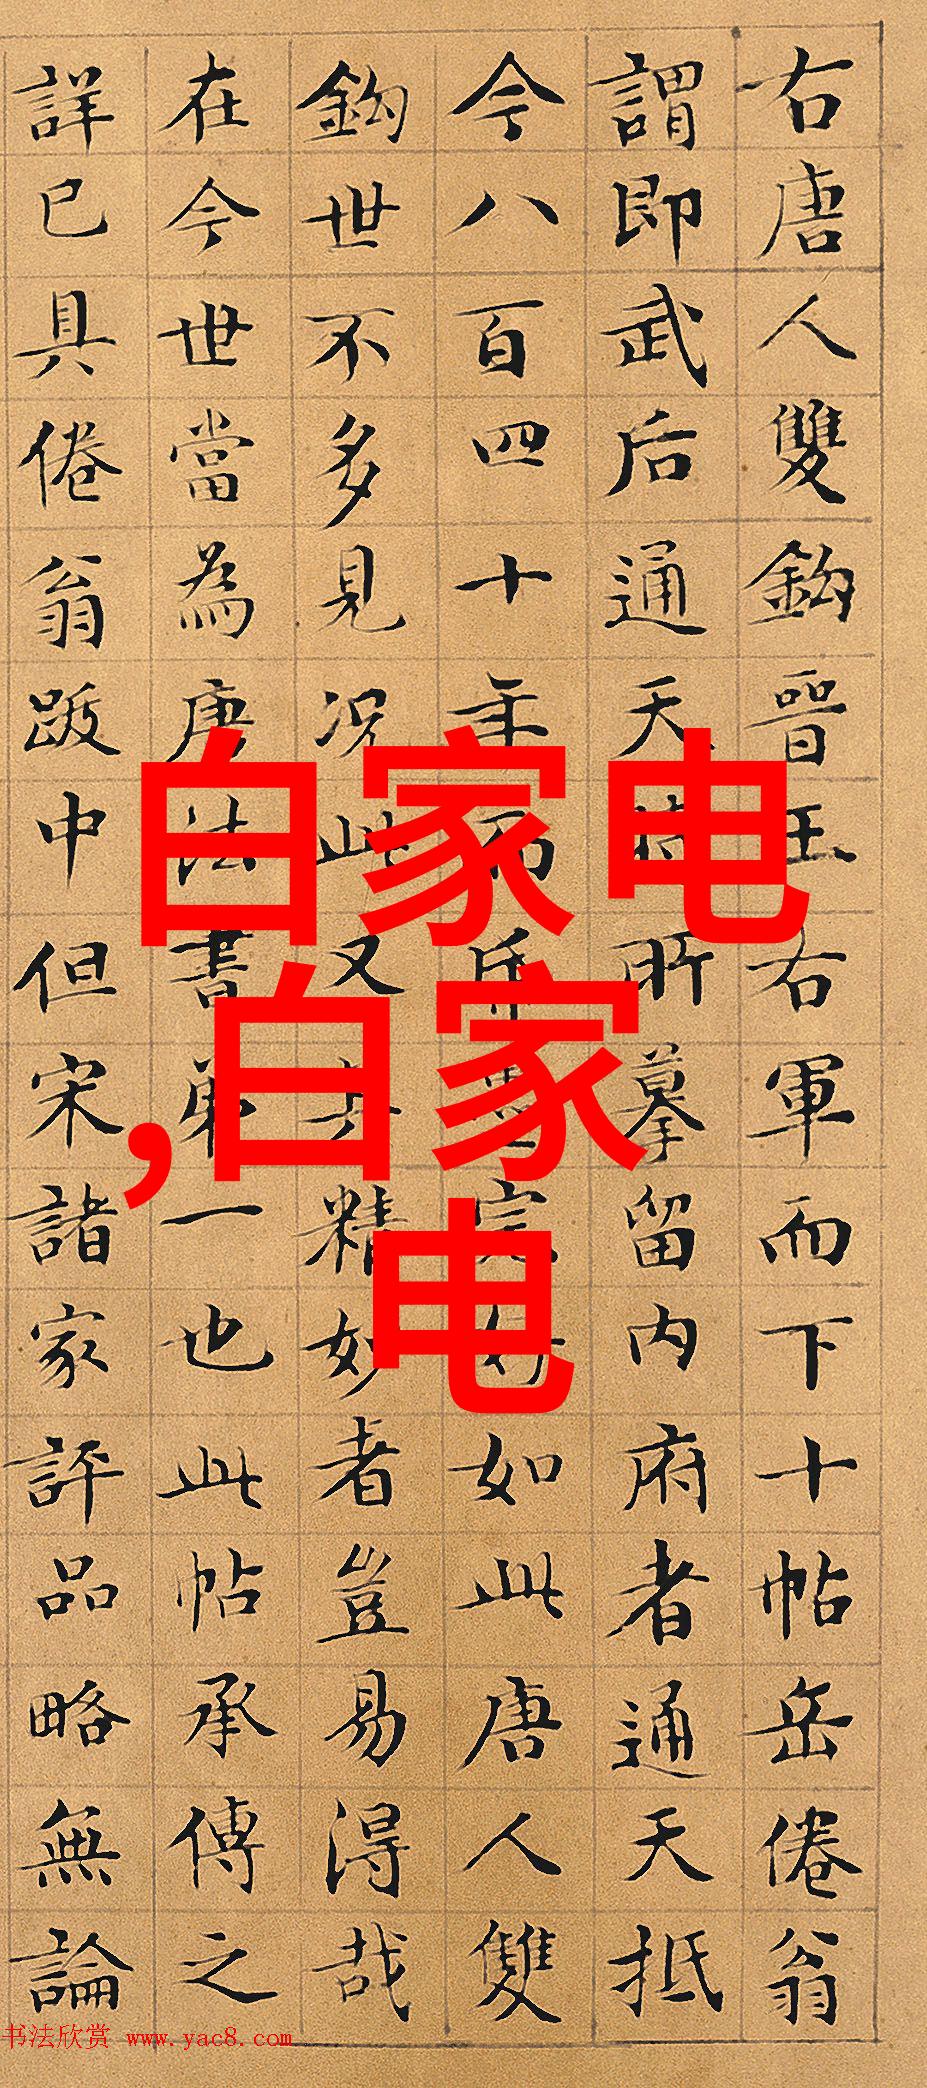 右唐人雙鈎晉王右軍而下十帖岳倦翁
謂即武后通天時所摹留内府者通天抵
今八百四十年而紙墨完好如此唐人雙
鈎世不多見况此又其精妙者豈易得哉
在今世當為唐法書第一也此帖承傳之
詳已具倦翁跋中但宋諸家評品略無論
白家电
,白家
电
书法欣赏 www.yac8.com